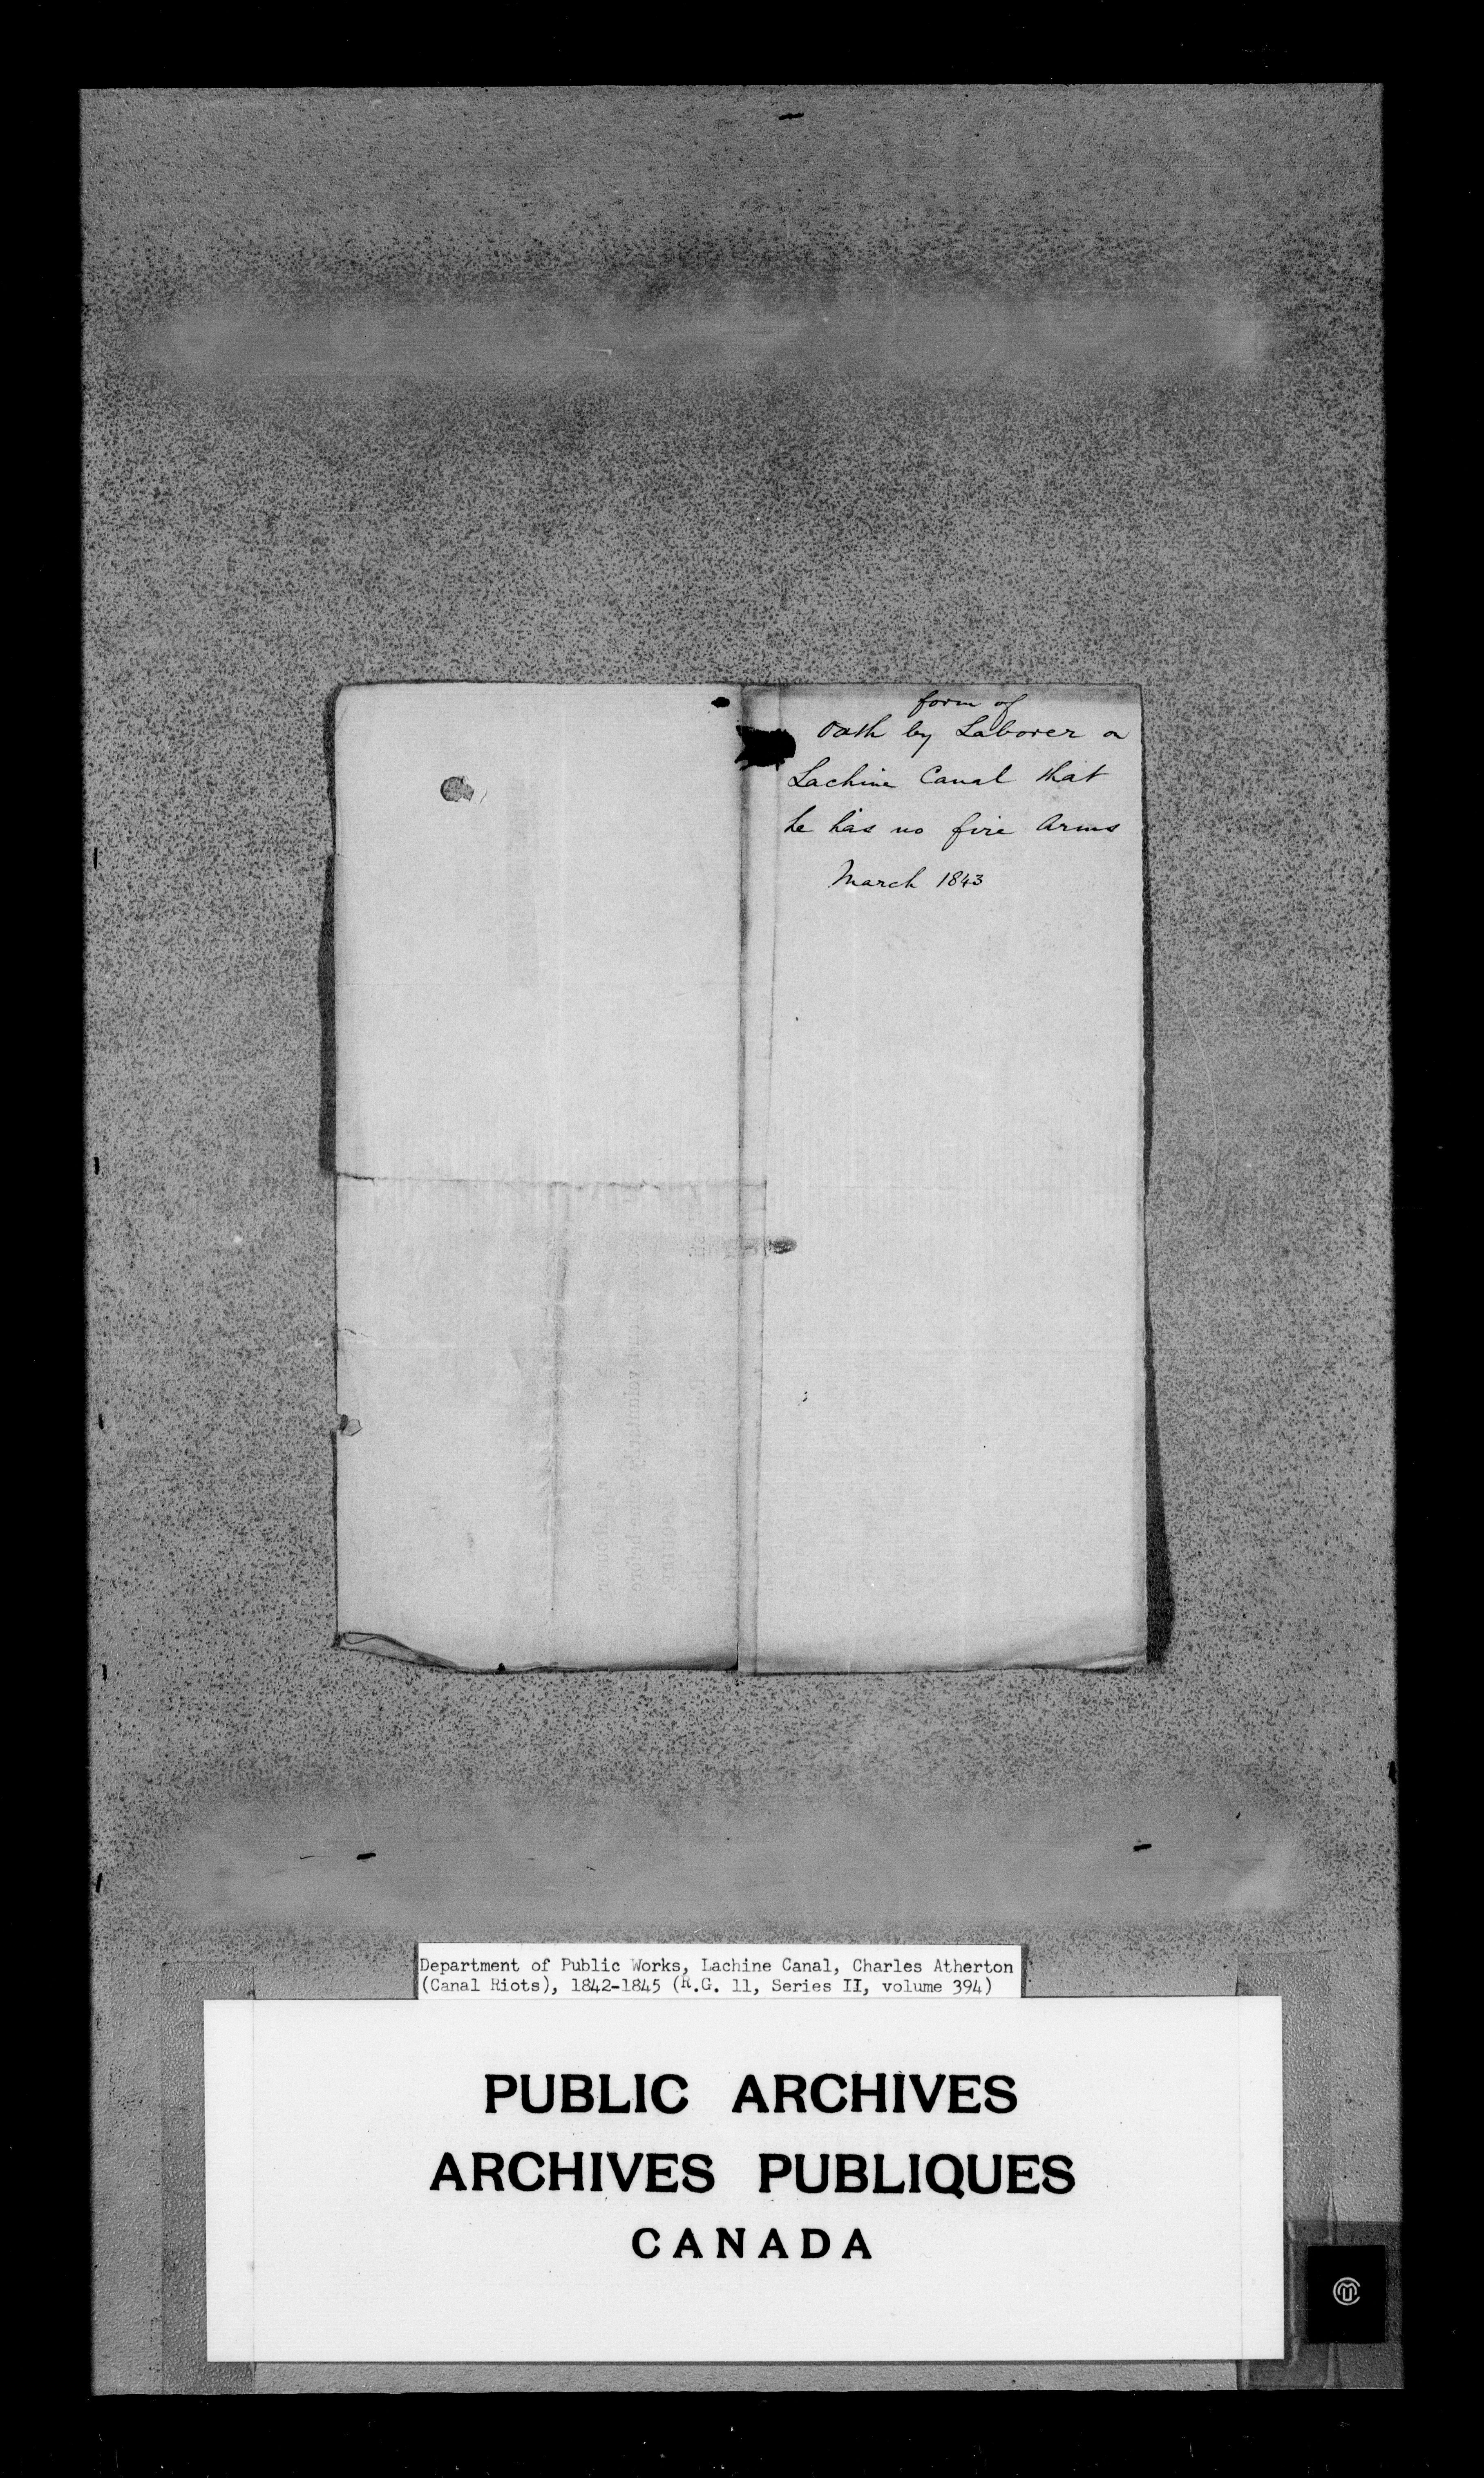 form of
Oath by Laborer on
Lachine Canal that
he has no fire Arms
March 1843
voluntarily came before
Department of Public Works, Lachine Canal, Charles Atherton
(Canal Riots), 1842-1845 (R.G. 11, Series II, volume 394)
PUBLIC ARCHIVES
ARCHIVES PUBLIQUES
CANADA